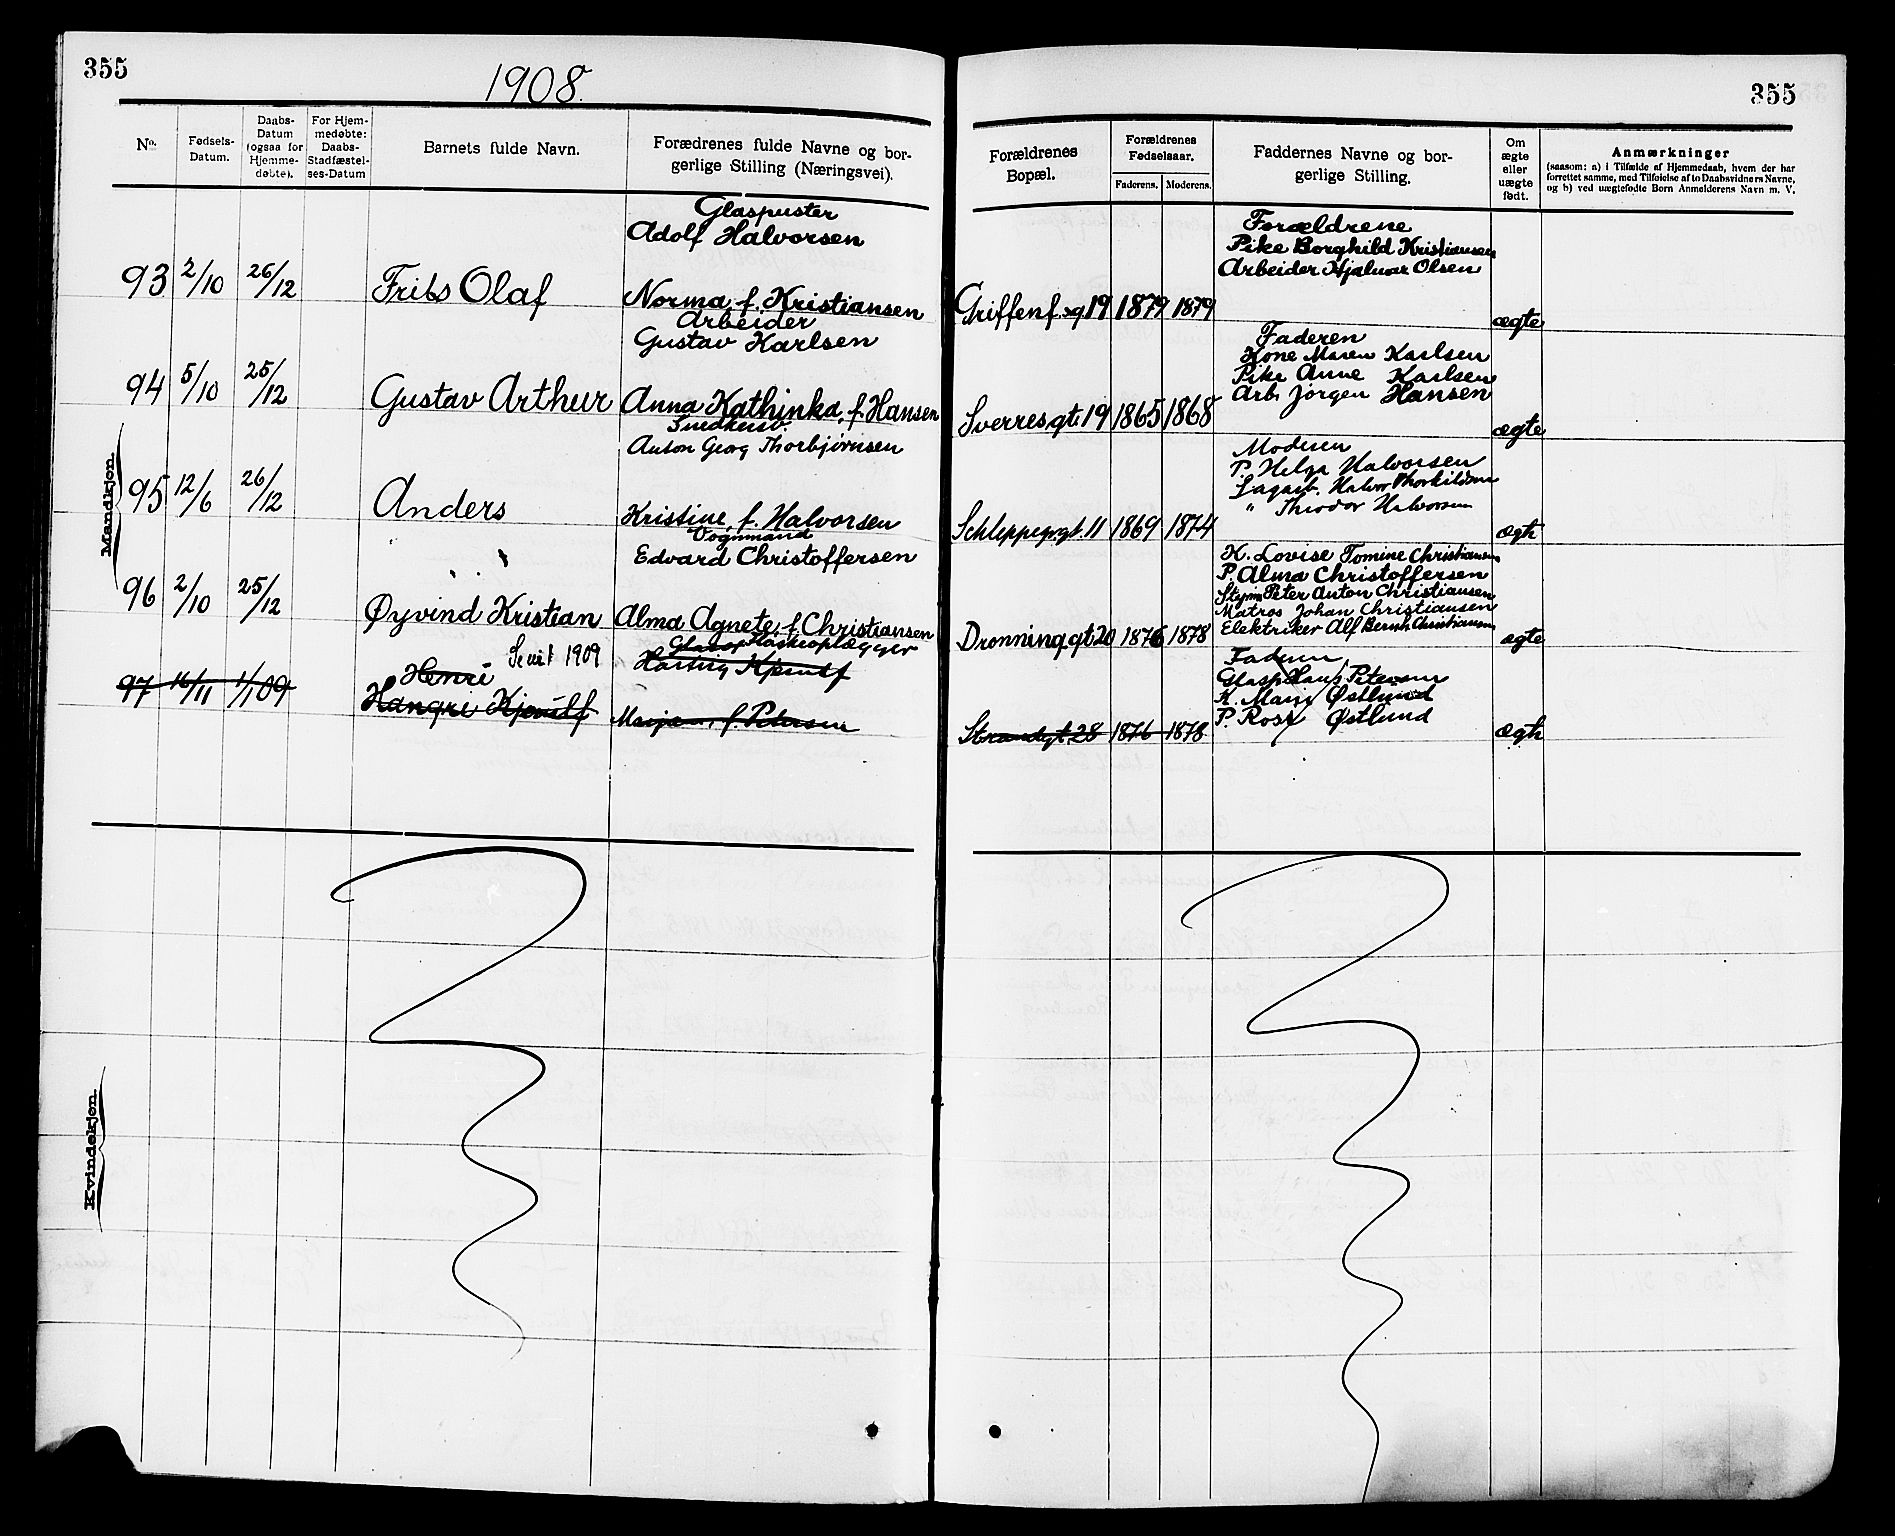 355
1908.
No.
Fødsels-Datum.
Daabs-Datum (ogsaa for Hjemme-døbte).
For Hjem-medøbte: Daabs-Stadfæstel-ses-Datum
Barnets fulde Navn.
Forædrenes fulde Navne og bor-gerlige Stilling (Næringsvei).
Mandkjøn.
Glaspuster
Adolf Halvorsen
93 2/10 26/12 Frits Olaf Norma, f. Kristiansen
Arbeider
Gustav Karlsen
94 5/10 25/12 Gustav Arthur Anna Kathinka, f. Hansen
Snedkersv.
Anton Georg Thorbjørnsen
95 12/6 26/12 Anders Kristine, f. Halvorsen
Vognmand
Edvard Christoffersen
96 2/10 25/12 Øyvind Kristian Alma Agnete, f. Christiansen
Se nr. 1 1909
Henri
97 16/11 1/1 09
Kvindekjøn.
355
Forældrenes Bopæl.
Forældrenes Fødselsaar.
Faderens. Moderens.
Faddernes Navne og bor-gerlige Stilling.
Om ægte eller uægte født.
Anmærkninger
(saasom: a) i Tilfælde af Hjemmedaab, hvem der har
forrettet samme, med Tilføielse af to Daabsvidners Navne,
og b) ved uægtefødte Børn Anmelderens Navn m. V.
Forældrene
Pike Borghild Kristiansen
Arbeider Hjalmar Olsen
Griffenf.sg 19 1879 1879 ægte
Faderen
Kone Maren Karlsen
Pike Anne Karlsen
Arb. Jørgen Hansen
Sverresgt. 19 1865 1868 ægte
Moderen
P. Helga Halvorsen
Sagarb. Halvor Thorkildsen
" Theodor Halvorsen
Schleppegr.gt. 11 1869 1874 ægte
K. Lovise Tomine Christiansen
P. Alma Christoffersen
Styrm Peter Anton Christiansen
Matros Johan Christiansen
Elektriker Alf Bernh. Christiansen
Dronning.gt 20 1876 1878 ægte
Faderen
Glasp. Hans Petersen
K. Marie Østlund
P. Rosa Østlund
Strandgt. 28 1876 1878 ægte